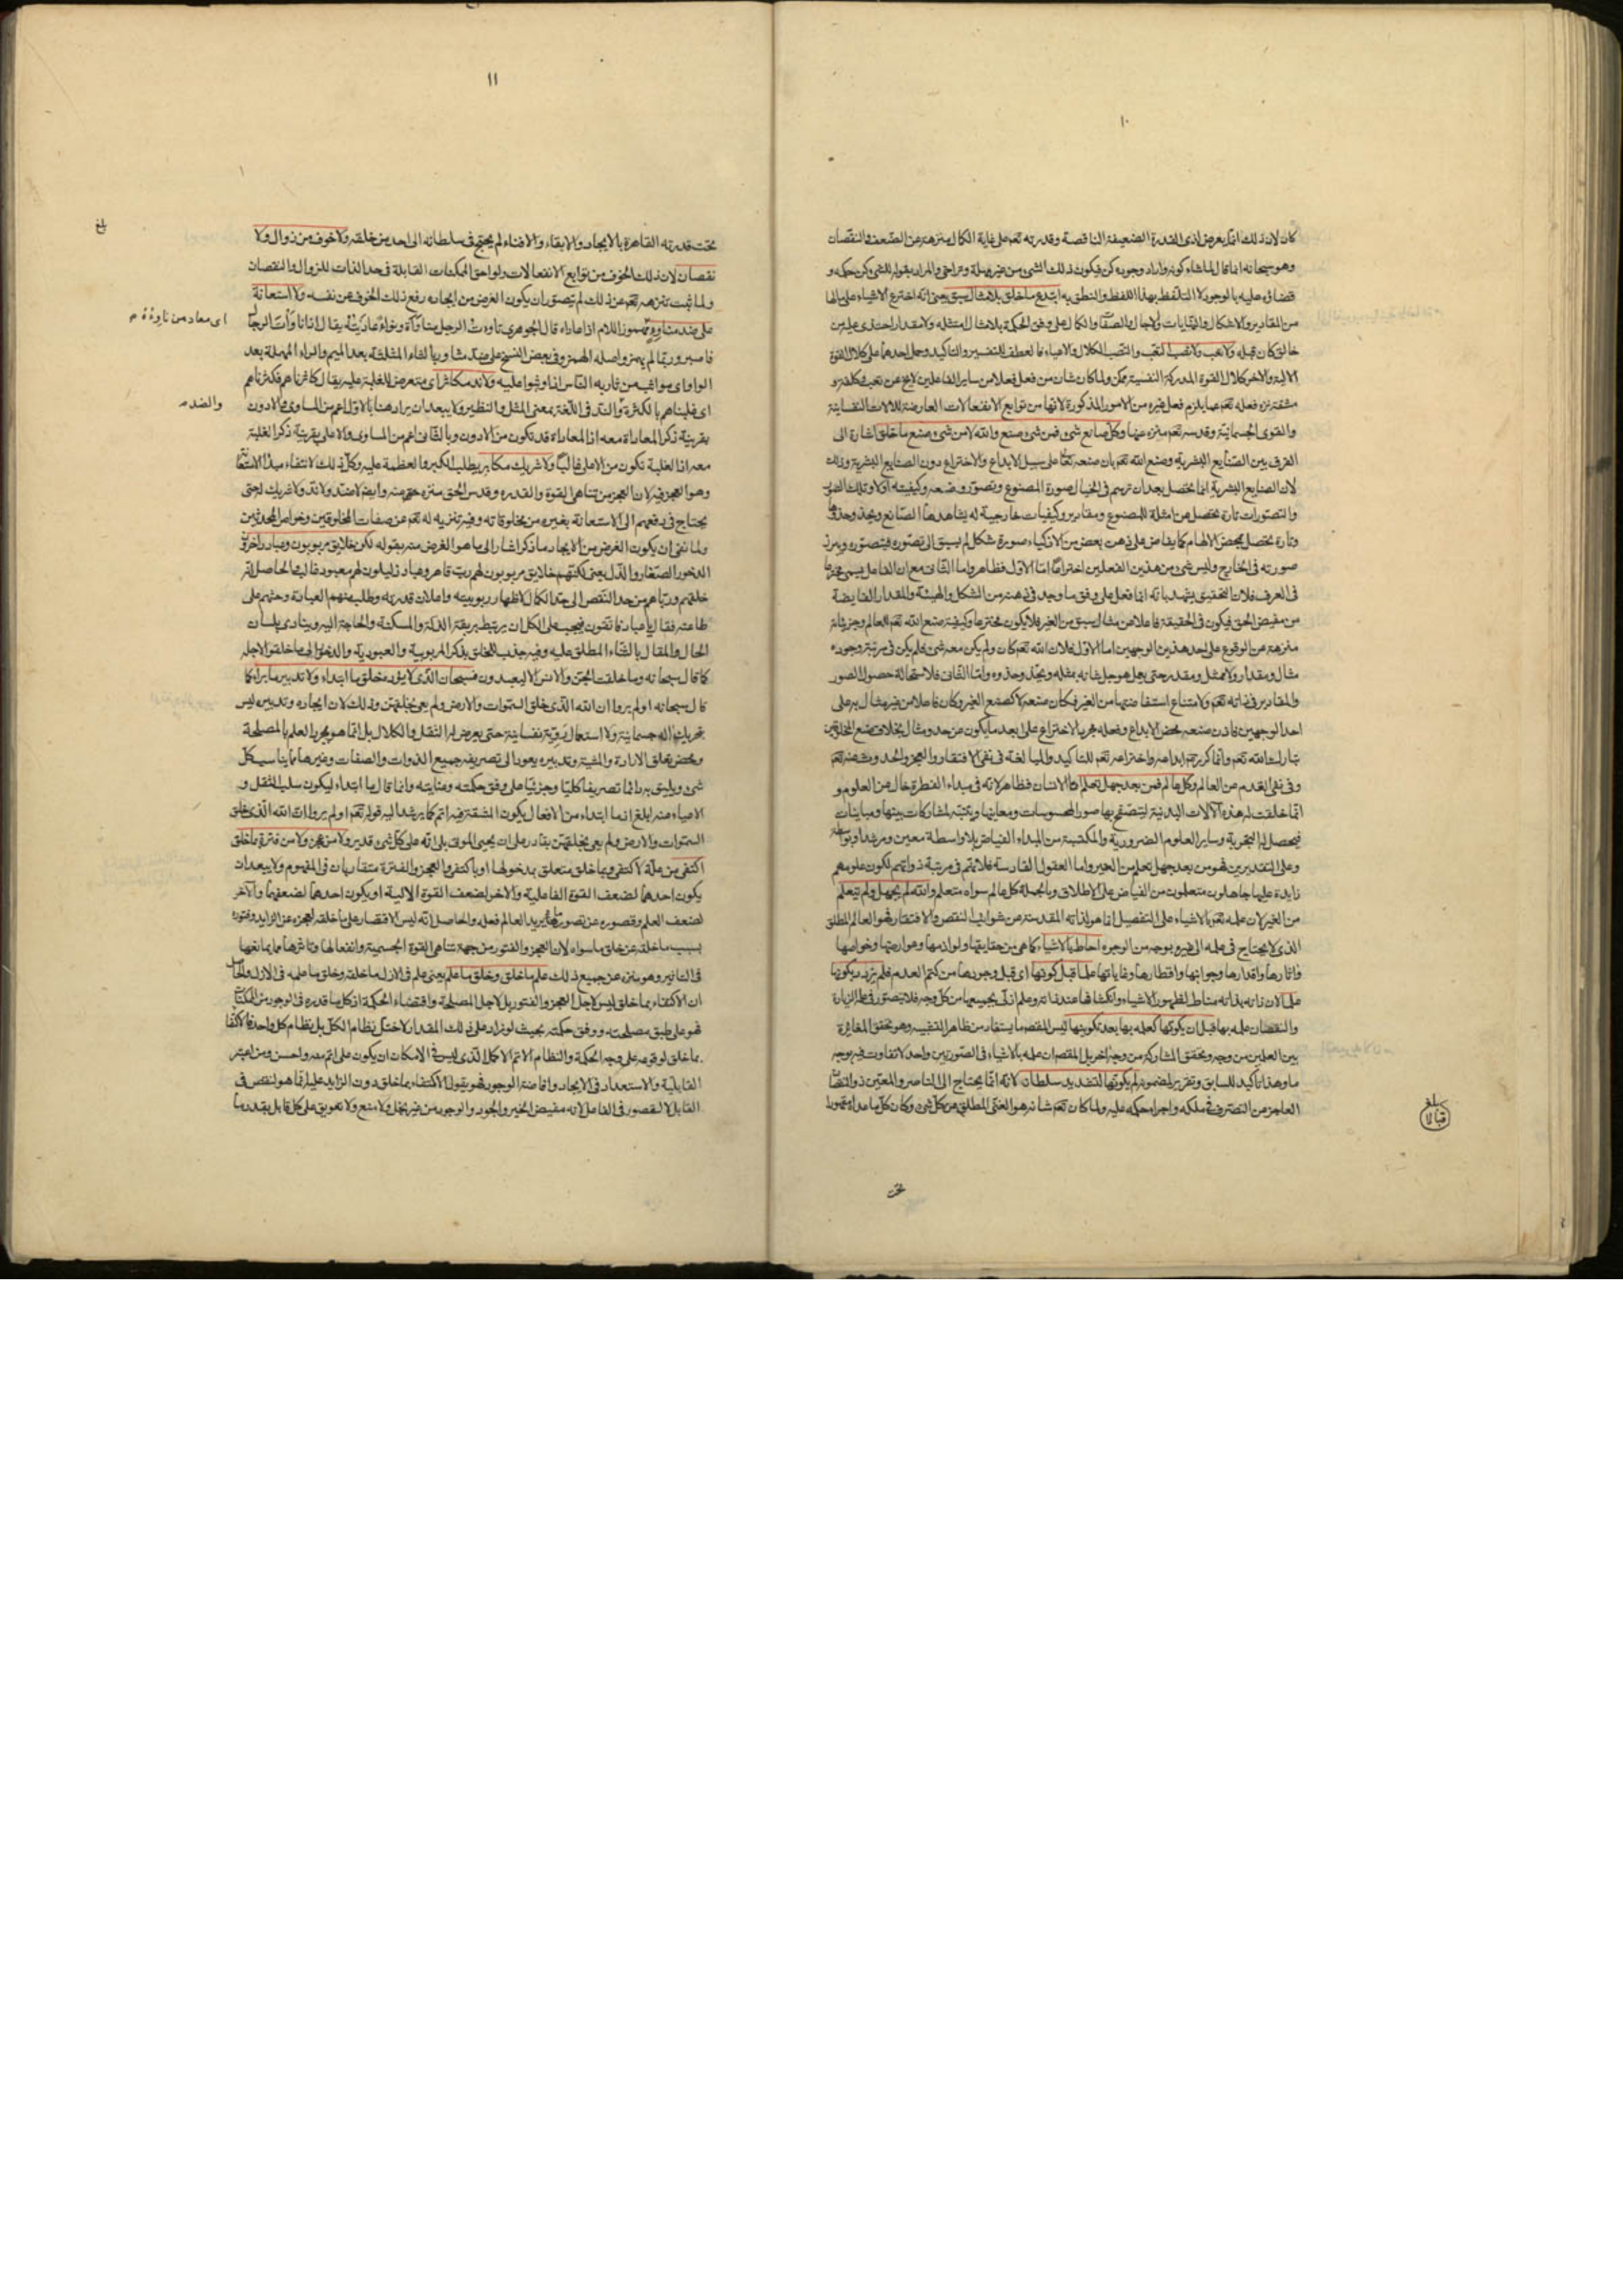 ١٠
كان لان ذلك انما يعرض لذى القدرة الضعيفة الناقصة وقدرته تعم على غاية الكمال منزهة عن الضعف والنقصان
وهو سبحانه اذا قال لما شاء كونه واراد وجوده كن فيكون ذلك الشئ من غير مهلة وتراخى والمراد بقوله للشئ كن حكمه و
قضاؤه عليه بالوجود لا التلفظ بهذا اللفظ والنطق به ابتدع ما خلق بلا مثال سبق يعنى انه اخترع الاشياء على مالها
من المقادير والاشكال والنهايات والاجال والصفات والكمال على وفق الحكمة بلا مثال امتثله ولا مقدار احتذى عليه من
خالق كان قبله ولا تعب ولا نصب التعب والنصب الكلال والاعياء فالعطف للتفسير والتاكيد وحمل احدهما على كلال القوة
الالية والاخر كلال القوة المدركة النفسية ممكن ولما كان شان من فعل فعلا من ساير الفاعلين لا يخ عن تعب وكلفة و
مشقة نزه فعله تعم عما يلزم فعل غيره من الامور المذكورة لانها من توابع الانفعالات العارضة للالات النفسانية
والقوى الجسمانية وقدسه تعم منزه عنها وكل صانع شئ فمن شئ صنع والله لا من شئ صنع ما خلق اشارة الى
الفرق بين الصنايع البشرية وصنع الله تعم بان صنعه تعم على سبيل الابداع والاختراع دون الصنايع البشرية وذلك
لان الصنايع البشرية انما تحصل بعد ان ترسم فى الخيال صورة المصنوع وتصور وضعه وكيفيته اولا وتلك الصور
والتصورات تارة تحصل عن امثلة للمصنوع ومقادير وكيفيات خارجية له يشاهدها الصانع ويحذو حذوها
وتارة تحصل بمحض الالهام كما يفاض على ذهن بعض من الاذكياء صورة شكل لم يسبق الى تصوره فيتصوره ويبرز
صورته فى الخارج وليس شئ من هذين الفعلين اختراعا اما الاول فظاهر واما الثانى مع ان الفاعل يسمى مخترعا
فى العرف فلان التحقيق يشهد بانه انما فعل على وفق ما وجد فى ذهنه من الشكل والهيئة والمقدار الفايضة
من مفيض الحق فيكون فى الحقيقة فاعلا من مثال سبق من الغير فلا يكون مخترعا وكيفية صنع الله تعم العالم وجزئياته
منزهة عن الوقوع على احد هذين الوجهين اما الاول فلان الله تعم كان ولم يكن معه شئ فلم يكن فى مرتبة وجوده
مثال ومقدار ولا ممثل ومقدر حتى يعمل هو جل شانه بمثله ويحذو حذوه واما الثانى فلاستحالة حصول الصور
والمقادير فى ذاته تعم ولامتناع استفاضتها من الغير فكان صنعه لا كصنع الغير وكان فاعلا من غير مثال يرد على
احد الوجهين فاذن صنعه محض الابداع وفعله مجرد الاختراع على ابعد ما يكون عن حد ومثال بخلاف صنع المخلوقين
تبارك الله تعم وانما كرر تعم ابداعه واختراعه تعم للتاكيد والمبالغة فى نفى الافتقار والعجز والحد وشبهه تعم
وفى نفى القدم عن العالم وكل عالم فمن بعد جهل تعلم اما الانسان فظاهر لانه فى مبداء الفطرة خال عن العلوم و
انما خلقت له هذه الالات البدنية ليتصفح بها صور المحسوسات ومعانيها ويتنبه لمشاركات بينها ومباينات
فيحصل له التجربة وساير العلوم الضرورية والمكتسبة من المبداء الفياض بلا واسطة معين ومرشد او بواسطة
وعلى التقديرين فهو من بعد جهل تعلم من الغير واما العقول القادسة فلانهم فى مرتبة ذواتهم لكون علومهم
زايدة عليها جاهلون متعلمون من الفياض على الاطلاق وبالجملة كل عالم سواه متعلم والله لم يجهل ولم يتعلم
من الغير لان علمه تعم بالاشياء على التفصيل انما هو لذاته المقدسة عن شوايب النقص والافتقار فهو العالم المطلق
الذى لا يحتاج فى علمه الى غيره بوجه من الوجوه احاط بالاشياء كما هى من حقايقها ولوازمها وعوارضها وخواصها
واثارها واقدارها وجوانبها واقطارها وغاياتها علما قبل كونها اى قبل وجودها من كتم العدم فلم يزدد بكونها
علما لان ذاته بذاته مناط لظهور الاشياء وانكشافها عند ذاته وعلم ازلى بجميعها من كل وجه فلا يتصور فى علمه الزيادة
والنقصان علمه بها قبل ان يكونها كعلمه بها بعد تكوينها ليس المقصود ما يستفاد من ظاهر التشبيه وهو تحقق المغايرة
بين العلمين من وجه وتحقق المشاركة من وجه اخر بل المقصود ان علمه بالاشياء فى الصورتين واحد لا تفاوت فيه بوجه
ما وهذا تاكيد للسابق وتقرير لمضمونه لم يكونها لتشديد سلطان لانه انما يحتاج الى الناصر والمعين ذو النقصان
العاجز من التصرف فى ملكه واجراء حكمه عليه ولما كان تعم شانه هو الغنى المطلق عن كل شئ وكان كل ما عداه مقهورا
تحت
بلغ
قبالا
١١
تحت قدرته القاهرة بالايجاد والابقاء والافناء لم يحتج فى سلطانه الى احد من خلقه ولا خوف من زوال ولا
نقصان لان ذلك الخوف من توابع الانفعالات ولواحق الممكنات القابلة فى حد الذات للزوال والنقصان
ولما ثبت تنزهه تعم عن ذلك لم يتصور ان يكون الغرض من ايجاده رفع ذلك الخوف عن نفسه ولا استعانة
على ضد مناو مهموز اللام اذا عاداه قال الجوهرى ناوءت الرجل مناوأة ونواء عاديته يقال اذا ناوأت الرجال
فاصبر وربما لم يهمز واصله الهمز وفى بعض النسخ على ضد مثاور بالثاء المثلثة بعد الميم والراء المهملة بعد
الواو اى مواثب من ثار به الناس اذا وثبوا عليه ولا ند مكاثر اى متعرض للغلبة عليه يقال كاثرناهم فكثرناهم
اى غلبناهم بالكثرة والند فى اللغة بمعنى المثل والنظير ولا يبعد ان يراد هنا بالاول اعم من المساوى والادون
بقرينة ذكر المعاداة معه اذ المعاداة قد تكون من الادون وبالثانى اعم من المساوى والاعلى بقرينة ذكر الغلبة
معه اذ الغلبة تكون من الاعلى غالبا ولا شريك مكابر يطلب الكبر والعظمة عليه وكل ذلك لانتفاء مبدأ الاستعانة
وهو العجز فيه لان العجز من تناهى القوة والقدرة وقدس الحق منزه عنه وايض لا ضد ولا ند ولا شريك له حتى
يحتاج فى دفعهم الى الاستعانة بغيره من مخلوقاته وفيه تنزيه له تعم عن صفات المخلوقين وخواص المحدثين
ولما نفى ان يكون الغرض من الايجاد ما ذكر اشار الى ما هو الغرض منه بقوله لكن خلايق مربوبون وعباد داخرون
الدخور الصغار والذل يعنى لكنهم خلايق مربوبون لهم رب قاهر وعباد ذليلون لهم معبود غالب والحاصل انه
خلقهم ورباهم من حد النقص الى حد الكمال لاظهار ربوبيته واعلان قدرته وطلب منهم العبادة وحثهم على
طاعته فقال يا عباد فاتقون فيجب على الكل ان يرتبط بربقة الذلة والمسكنة والحاجة اليه وينادى بلسان
الحال والمقال بالثناء المطلق عليه وفيه جذب للخلق بذكر المربوبية والعبودية والدخور الى ما خلقوا لاجله
كما قال سبحانه وما خلقت الجن والانس الا ليعبدون فسبحان الذى لا يؤده خلق ما ابتداء ولا تدبير ما براء كما
قال سبحانه اولم يروا ان الله الذى خلق السموات والارض ولم يعى بخلقهن وذلك لان ايجاده وتدبيره ليس
بتحريك اله جسمانية ولا استعمال روية نفسانية حتى يعرض له الثقل والكلال بل انما هو مجرد العلم بالمصلحة
ومحض تعلق الارادة والمشية وتدبيره يعود الى تصريفه جميع الذوات والصفات وغيرها بما يناسب كل
شئ ويليق به دائما تصريفا كليا وجزئيا على وفق حكمته وعنايته وانما قال ما ابتداء ليكون سلب الثقل و
الاعياء منه ابلغ اذ ما ابتداء من الافعال يكون المشقة فيه اتم كما يرشد اليه قوله تعم اولم يروا ان الله الذى خلق
السموات والارض ولم يعى بخلقهن بقادر على ان يحيى الموتى بلى انه على كل شئ قدير ولا من عجز ولا من فترة بما خلق
اكتفى من علة لاكتفى وبما خلق متعلق بدخولها او باكتفى والعجز والفترة متقاربان فى المفهوم ولا يبعد ان
يكون احدهما لضعف القوة الفاعلية والاخر لضعف القوة الالية او يكون احدهما لضعفهما والاخر
لضعف العلم وقصوره عن تصور ما يريد العالم فعله والحاصل انه ليس الاقتصار على ما خلقه لعجزه عن الزايد وفتوره
بسبب ما خلقه عن خلق ما سواه لان العجز والفتور من جهة تناهى القوة الجسمية وانفعالها وتاثرها مما يمانعها
فى التاثير وهو منزه عن جميع ذلك علم ما خلق وخلق ما علم يعنى علم فى الازل ما خلقه وخلق ما علمه فى الازل والحاصل
ان الاكتفاء بما خلق ليس لاجل العجز والفتور بل لاجل المصلحة واقتضاء الحكمة اذ كل ما قدره فى الوجود من الممكنات
فهو على طبق مصلحته ووفق حكمته بحيث لو زاد على ذلك المقدار لاختل نظام الكل بل نظام كل واحد فالاكتفاء
بما خلق لوقوعه على وجه الحكمة والنظام الاتم الاكمل الذى ليس فى الامكان ان يكون على اتم منه واحسن ومن اعتبر
القابلية والاستعداد فى الايجاد وافاضة الوجود فهو يقول الاكتفاء بما خلق دون الزايد عليه انما هو لنقص فى
القابل لا لقصور فى الفاعل لانه مفيض الخير والجود والوجود من غير بخل ولا منع ولا تعويق على كل قابل بقدر ما
بلغ
اى معاد من ناوءه م
والضد م